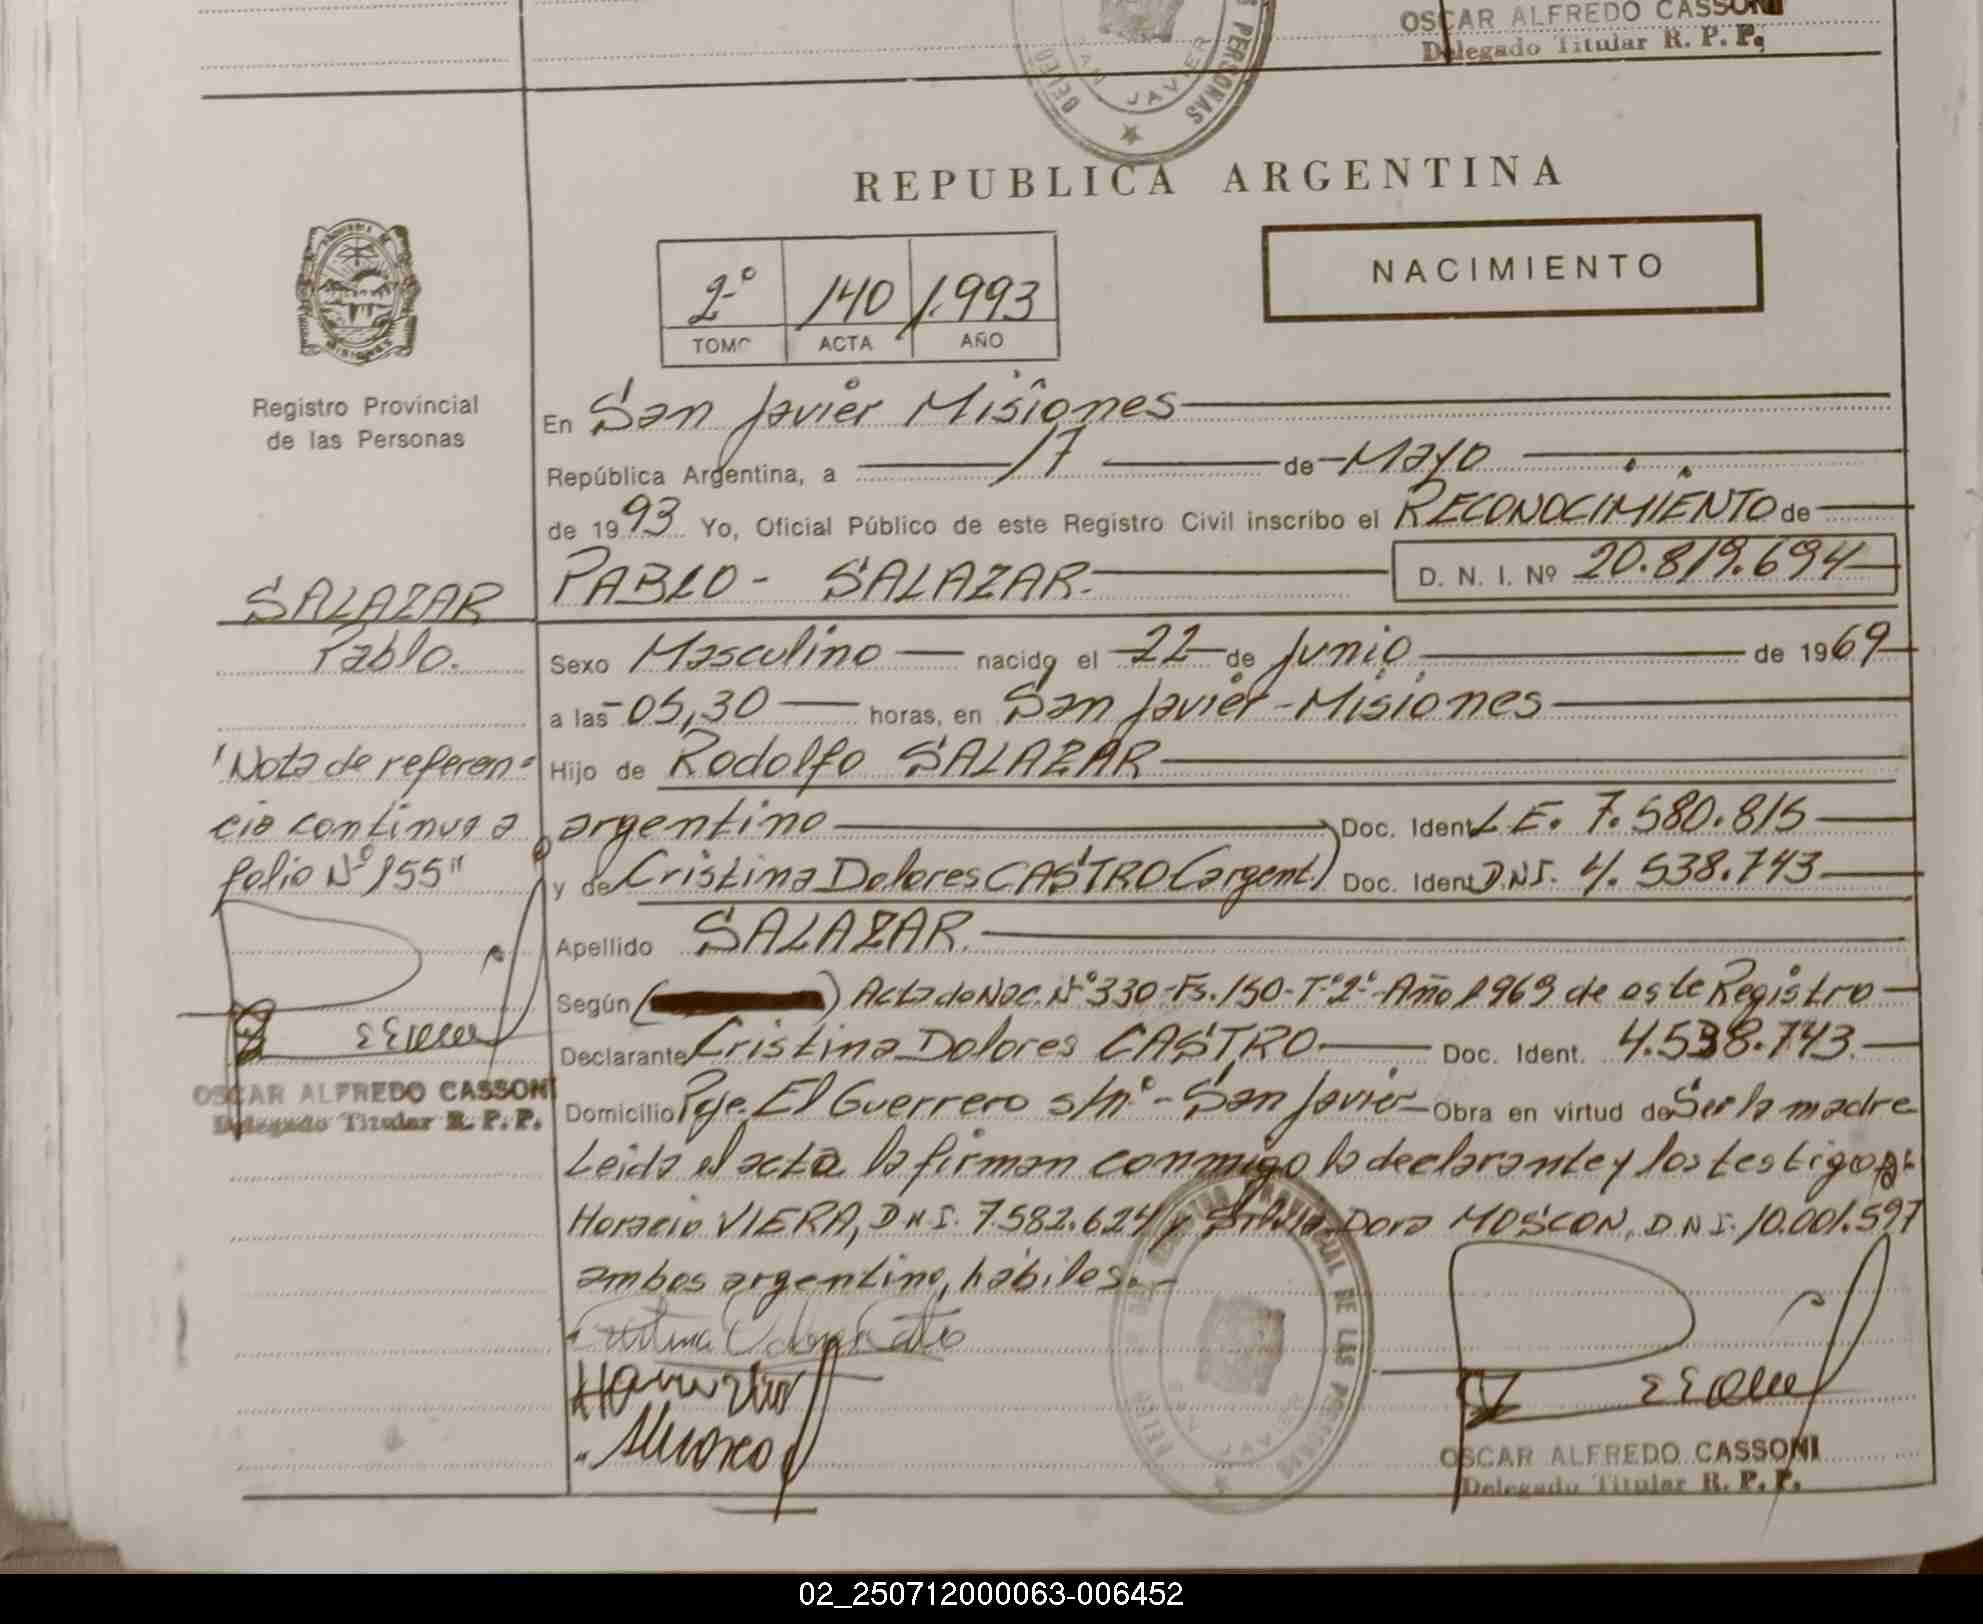 OSCAR ALFREDO CASSONI
Delegado Titular R. P. P.
DE LAS PERSONAS
SAN JAVIER
REPUBLICA ARGENTINA
NACIMIENTO
2º 140 1.993
TOMO ACTA AÑO
Registro Provincial
de las Personas
En San Javier Misiones
República Argentina, a 17 de Mayo
de 1993 Yo, Oficial Público de este Registro Civil inscribo el RECONOCIMIENTO de
PABLO - SALAZAR.- D. N. I. Nº 20.819.694
SALAZAR
Pablo.
Sexo Masculino nacido el 22 de Junio de 1969
a las 05,30 horas, en San Javier - Misiones
Hijo de Rodolfo SALAZAR
argentino Doc. Ident. L.E. 7.580.815
y de Cristina Dolores CASTRO (argent.) Doc. Ident. D.N.I. 4.538.743
Apellido SALAZAR.
Según ( ) Acta de Nac. Nº 330-Fs.150-Tº2º-Año 1969 de este Registro
Declarante Cristina Dolores CASTRO Doc. Ident. 4.538.743.
Domicilio Pje. El Guerrero s/nº - San Javier Obra en virtud de Ser la madre
Leida el acta la firman conmigo la declarante y los testigos:
Horacio VIERA, D.N.I. 7.582.624 y Silvia Dora MOSCON, D.N.I. 10.001.597
ambos argentino, hábiles.-
"Nota de referen-
cia continua a
folio Nº 155"
OSCAR ALFREDO CASSONI
Delegado Titular R. P. P.
REGISTRO PROVINCIAL DE LAS PERSONAS
SAN JAVIER
OSCAR ALFREDO CASSONI
Delegado Titular R. P. P.
02_250712000063-006452